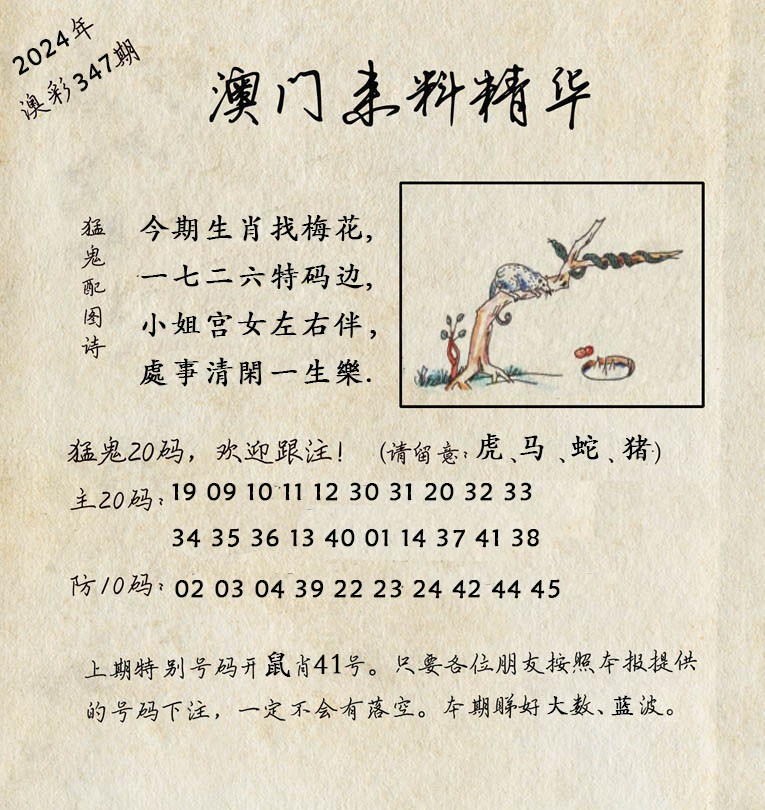 2024年
澳彩347期
澳门来料精华
猛鬼配图诗
今期生肖找梅花,
一七二六特码边,
小姐宫女左右伴,
處事清閑一生樂.
猛鬼20码，欢迎跟注！（请留意：虎、马、蛇、猪）
主20码：19 09 10 11 12 30 31 20 32 33
34 35 36 13 40 01 14 37 41 38
防10码：02 03 04 39 22 23 24 42 44 45
上期特别号码开鼠肖41号。只要各位朋友按照本报提供
的号码下注，一定不会有落空。本期睇好大数、蓝波。